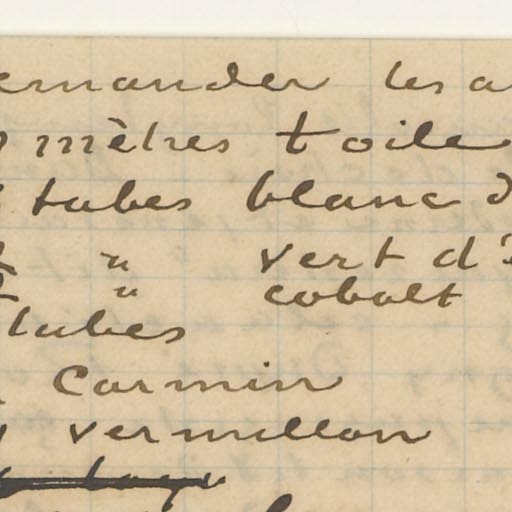 emander les a
mètres toile
tubes blanc d
" vert d'
" cobalt
tubes
Carmin
vermillon